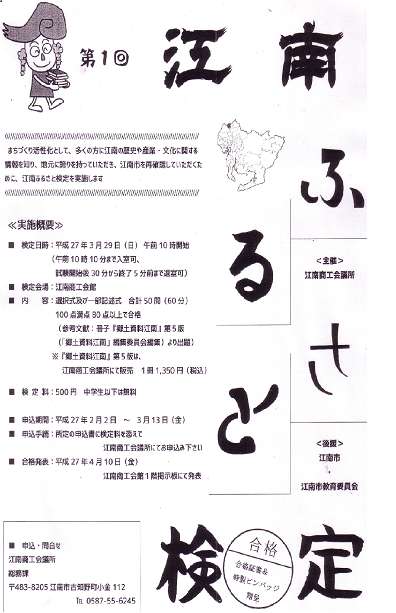 第1回
江南
ふるさと
検定
まちづくり活性化として、多くの方に江南の歴史や産業・文化に関する
情報を知り、地元に誇りを持っていただき、江南市を再確認していただくた
めに、江南ふるさと検定を実施します
≪実施概要≫
■ 検定日時:平成27年3月29日(日) 午前10時開始
(午前10時10分まで入室可、
試験開始後30分から終了5分前まで退室可)
■ 検定会場:江南商工会館
■ 内 容:選択式及び一部記述式 合計50問(60分)
100点満点80点以上で合格
(参考文献:冊子『郷土資料江南』第5版
(「郷土資料江南」編集委員会編集)より出題)
※『郷土資料江南』第5版は、
江南商工会議所にて販売 1冊1,350円(税込)
■ 検 定 料:500円 中学生以下は無料
■ 申込期間:平成27年2月2日 ~ 3月13日(金)
■ 申込手続:所定の申込書に検定料を添えて
江南商工会議所にてお申込み下さい
■ 合格発表:平成27年4月10日(金)
江南商工会館1階掲示板にて発表
<主催>
江南商工会議所
<後援>
江南市
江南市教育委員会
■ 申込・問合せ
江南商工会議所
総務課
〒483-8205 江南市古知野町小金112
TEL 0587-55-6245
合格
合格証書&
特製ピンバッジ
贈呈